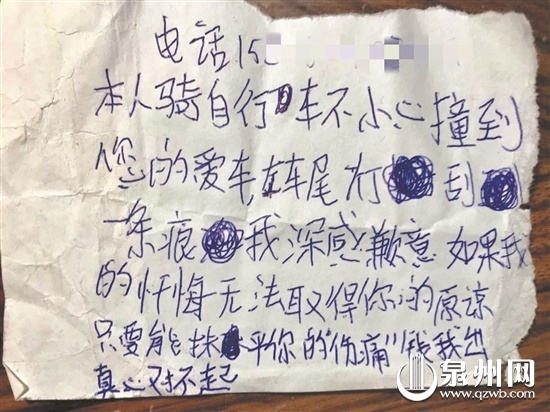 电话15
本人骑自行车不小心撞到
您的爱车左车尾灯刮
一条痕我深感歉意如果我
的忏悔无法取得你的原谅
只要能抹平你的"伤痛"钱我出
真心对不起
泉州网
www.qzwb.com